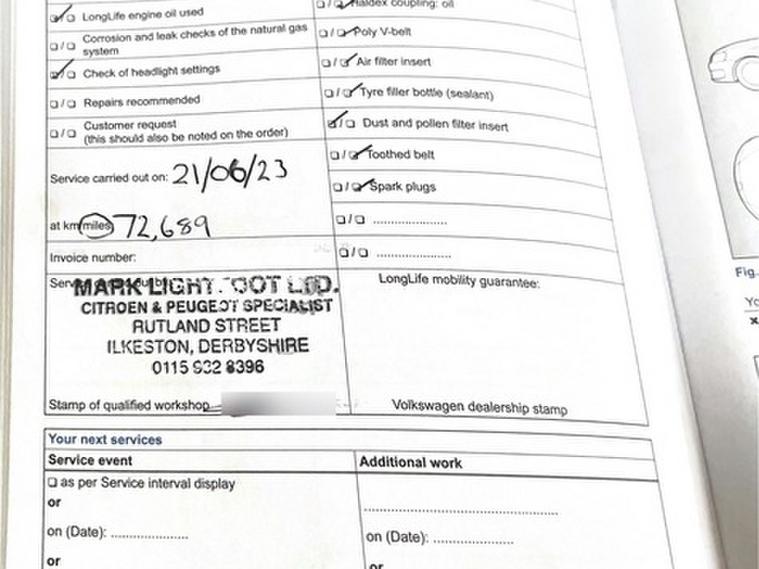 LongLife engine oil used
Haldex coupling: oil
Corrosion and leak checks of the natural gas system
Poly V-belt
Check of headlight settings
Air filter insert
Repairs recommended
Tyre filler bottle (sealant)
Customer request
(this should also be noted on the order)
Dust and pollen filter insert
Toothed belt
Service carried out on: 21/06/23
Spark plugs
at km/miles: 72,689
Invoice number:
MARK LIGHTFOOT LTD.
CITROEN & PEUGEOT SPECIALIST
RUTLAND STREET
ILKESTON, DERBYSHIRE
0115 932 8396
LongLife mobility guarantee:
Stamp of qualified workshop
Volkswagen dealership stamp
Your next services
Service event
Additional work
as per Service interval display
or
on (Date): ....................
on (Date): ....................
or
or
Fig.
Yo